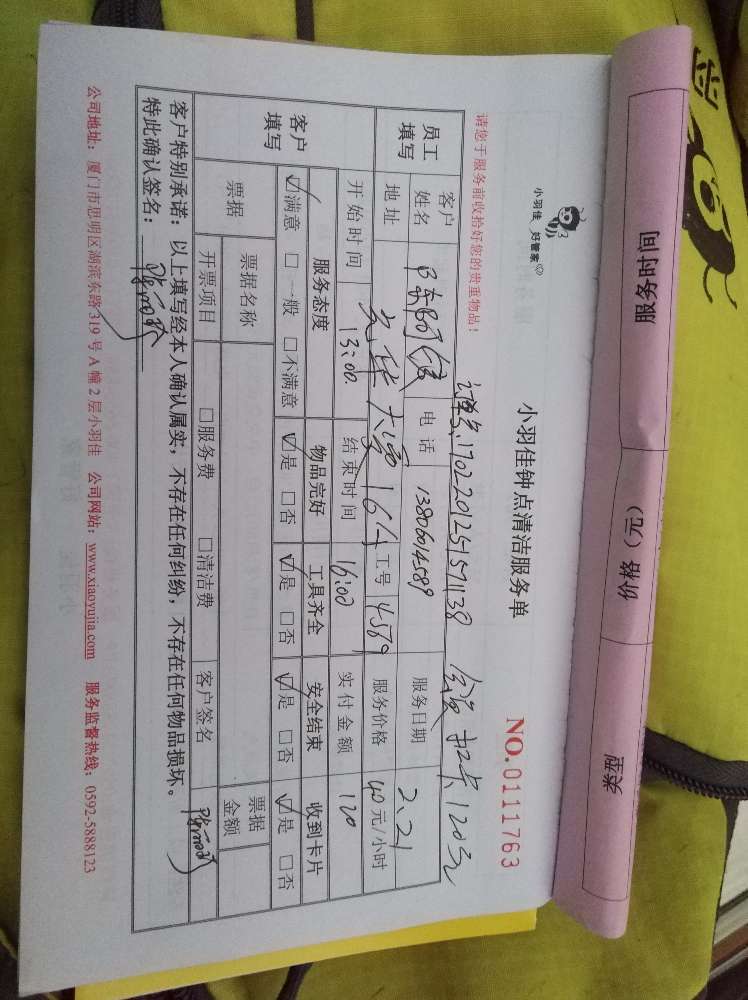 服务时间 价格（元） 类型
小羽佳 好管家
小羽佳钟点清洁服务单
NO.0111763
请您于服务前收拾好您的贵重物品！
订单号170220125157138 会员扣卡120元
员工填写
客户姓名 电话 13806014589 服务日期 2.21
地址 光华大厦16A 工号 4579 服务价格 40元/小时
开始时间 13:00 结束时间 16:00 实付金额 120
客户填写
服务态度 物品完好 工具齐全 安全结束 收到卡片
☑满意 □一般 □不满意 ☑是 □否 ☑是 □否 ☑是 □否 ☑是 □否
票据 票据名称 票据金额
开票项目 □服务费 □清洁费 客户签名
客户特别承诺：以上填写经本人确认属实，不存在任何纠纷，不存在任何物品损坏。
特此确认签名：
公司地址：厦门市思明区湖滨东路319号A幢2层小羽佳 公司网站：www.xiaoyujia.com 服务监督热线：0592-5888123